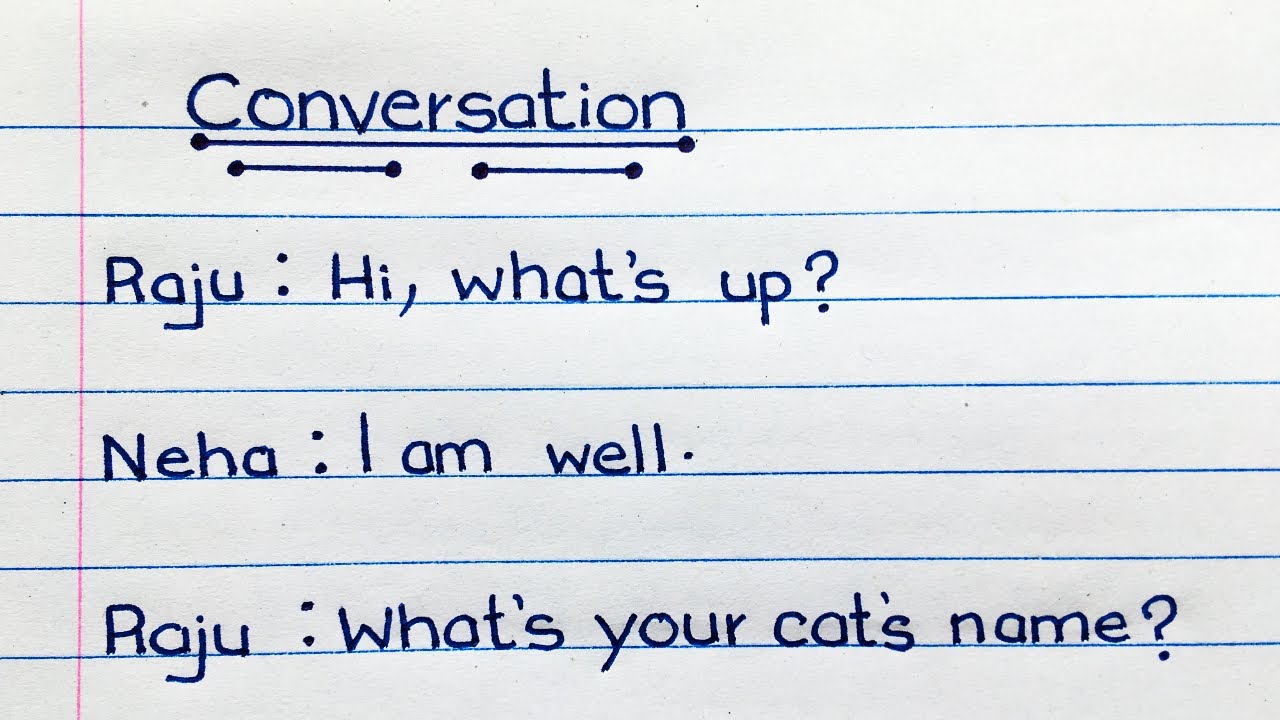 Conversation
Raju : Hi, what's up?
Neha : I am well.
Raju : What's your cat's name?